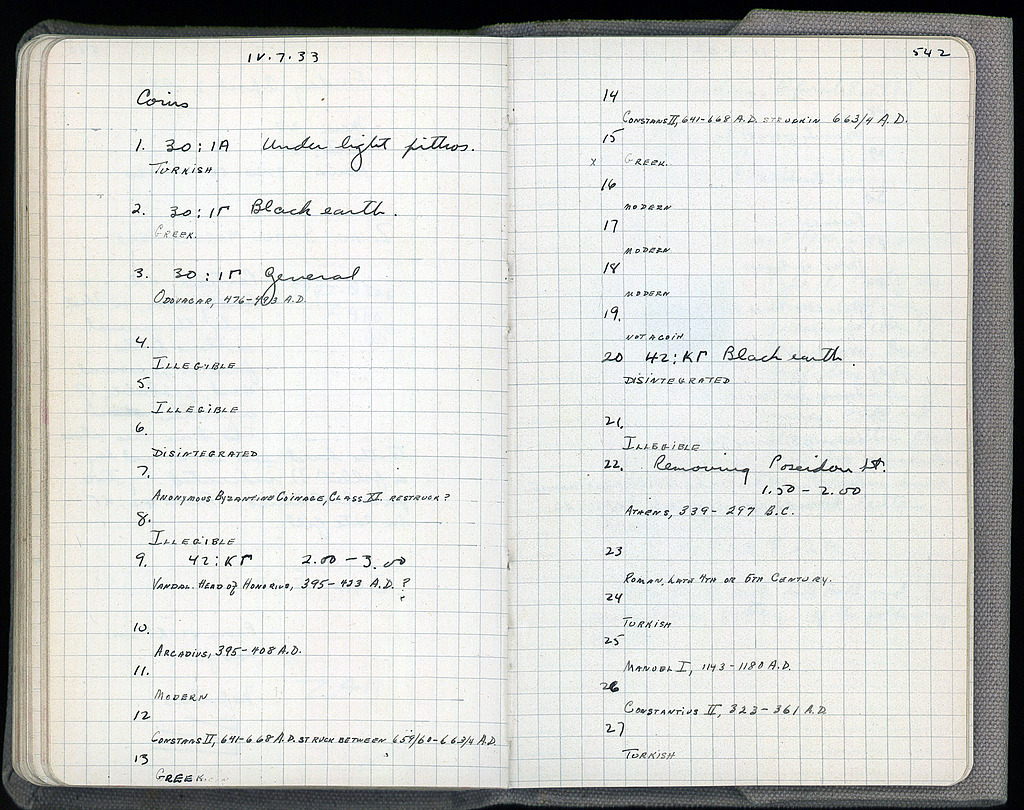 IV.7.33
Coins
1. 30:1A Under light pithos.
TURKISH
2. 30:1Γ Black earth.
GREEK.
3. 30:1Γ General
ODOVACAR, 476-493 A.D.
4.
ILLEGIBLE
5.
ILLEGIBLE
6.
DISINTEGRATED
7.
ANONYMOUS BYZANTINE COINAGE, CLASS XI. RESTRUCK?
8.
ILLEGIBLE
9. 42:KΓ 2.00-3.00
VANDAL. HEAD OF HONORIUS, 395-423 A.D.?
10.
ARCADIUS, 395-408 A.D.
11.
MODERN
12
CONSTANS II, 641-668 A.D. STRUCK BETWEEN 659/60-663/4 A.D.
13
GREEK.
542
14
CONSTANS II, 641-668 A.D. STRUCK IN 663/4 A.D.
15
x GREEK.
16
MODERN
17
MODERN
18
MODERN
19.
NOT A COIN
20 42:KΓ Black earth.
DISINTEGRATED
21.
ILLEGIBLE
22. Removing Poseidon St.
1.50-2.00
ATHENS, 339-297 B.C.
23
ROMAN, LATE 4TH OR 5TH CENTURY.
24
TURKISH
25
MANUEL I, 1143-1180 A.D.
26
CONSTANTIUS II, 323-361 A.D.
27
TURKISH